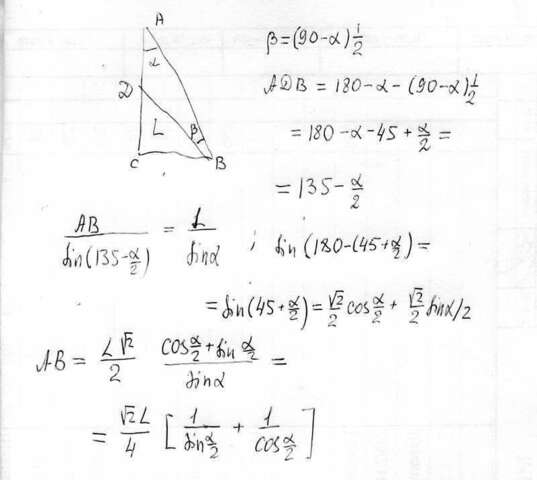 A
α
D
L
β
C
B
β=(90-α)½
ADB = 180-α-(90-α)½
= 180-α-45+α/2 =
= 135-α/2
AB/sin(135-α/2) = L/sinα ; sin(180-(45+α/2)=
= sin(45+α/2)= √2/2 cosα/2 + √2/2 sinα/2
AB = L√2/2 (cosα/2+sinα/2)/sinα =
= √2L/4 [1/sinα/2 + 1/cosα/2]